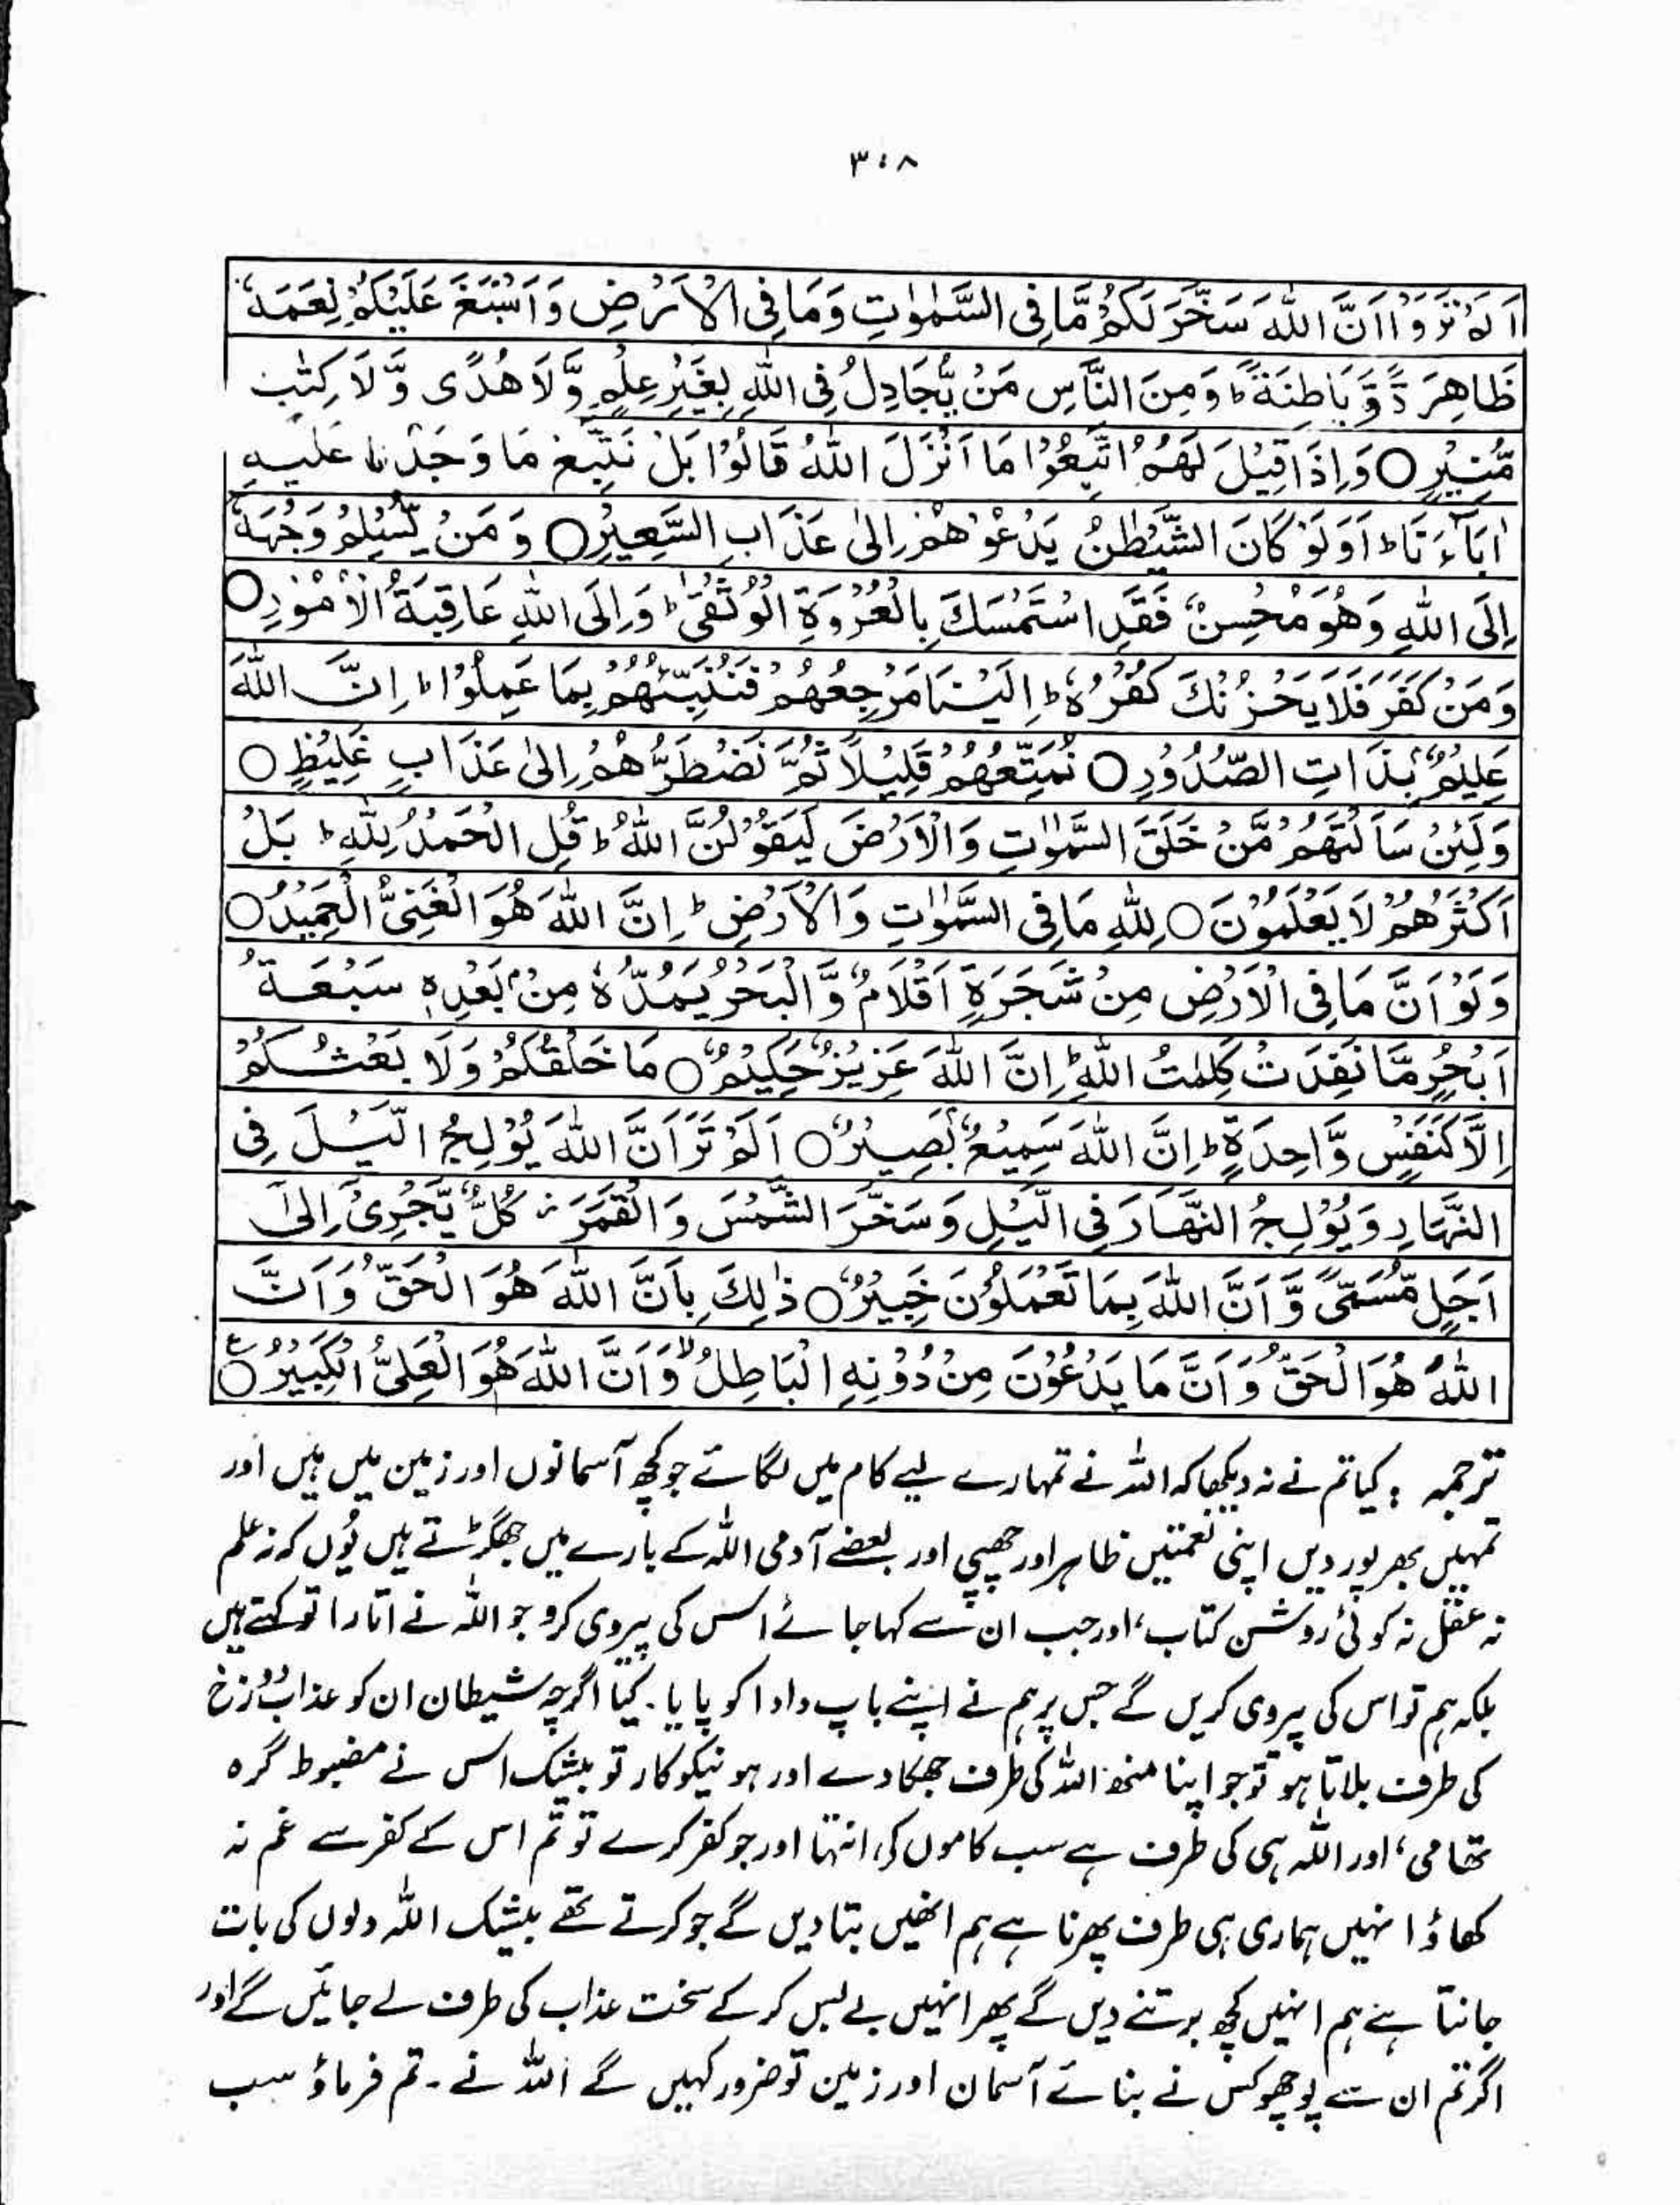 ٣٠٨
اَلَمْ تَرَوْا اَنَّ اللّٰهَ سَخَّرَ لَكُمْ مَّا فِی السَّمٰوٰتِ وَمَا فِی الْاَرْضِ وَاَسْبَغَ عَلَیْكُمْ نِعَمَهٗ
ظَاهِرَةً وَّبَاطِنَةً ؕ وَمِنَ النَّاسِ مَنْ یُّجَادِلُ فِی اللّٰهِ بِغَیْرِ عِلْمٍ وَّلَا هُدًی وَّلَا كِتٰبٍ
مُّنِیْرٍ ○ وَاِذَا قِیْلَ لَهُمُ اتَّبِعُوْا مَا اَنْزَلَ اللّٰهُ قَالُوْا بَلْ نَتَّبِعُ مَا وَجَدْنَا عَلَیْهِ
اٰبَآءَنَا ؕ اَوَلَوْ كَانَ الشَّیْطٰنُ یَدْعُوْهُمْ اِلٰی عَذَابِ السَّعِیْرِ ○ وَمَنْ یُّسْلِمْ وَجْهَهٗ
اِلَی اللّٰهِ وَهُوَ مُحْسِنٌ فَقَدِ اسْتَمْسَكَ بِالْعُرْوَةِ الْوُثْقٰی ؕ وَاِلَی اللّٰهِ عَاقِبَةُ الْاُمُوْرِ ○
وَمَنْ كَفَرَ فَلَا یَحْزُنْكَ كُفْرُهٗ ؕ اِلَیْنَا مَرْجِعُهُمْ فَنُنَبِّئُهُمْ بِمَا عَمِلُوْا ؕ اِنَّ اللّٰهَ
عَلِیْمٌۢ بِذَاتِ الصُّدُوْرِ ○ نُمَتِّعُهُمْ قَلِیْلًا ثُمَّ نَضْطَرُّهُمْ اِلٰی عَذَابٍ غَلِیْظٍ ○
وَلَئِنْ سَاَلْتَهُمْ مَّنْ خَلَقَ السَّمٰوٰتِ وَالْاَرْضَ لَیَقُوْلُنَّ اللّٰهُ ؕ قُلِ الْحَمْدُ لِلّٰهِ ؕ بَلْ
اَكْثَرُهُمْ لَا یَعْلَمُوْنَ ○ لِلّٰهِ مَا فِی السَّمٰوٰتِ وَالْاَرْضِ ؕ اِنَّ اللّٰهَ هُوَ الْغَنِیُّ الْحَمِیْدُ ○
وَلَوْ اَنَّ مَا فِی الْاَرْضِ مِنْ شَجَرَةٍ اَقْلَامٌ وَّالْبَحْرُ یَمُدُّهٗ مِنْۢ بَعْدِهٖ سَبْعَةُ
اَبْحُرٍ مَّا نَفِدَتْ كَلِمٰتُ اللّٰهِ ؕ اِنَّ اللّٰهَ عَزِیْزٌ حَكِیْمٌ ○ مَا خَلْقُكُمْ وَلَا بَعْثُكُمْ
اِلَّا كَنَفْسٍ وَّاحِدَةٍ ؕ اِنَّ اللّٰهَ سَمِیْعٌۢ بَصِیْرٌ ○ اَلَمْ تَرَ اَنَّ اللّٰهَ یُوْلِجُ الَّیْلَ فِی
النَّهَارِ وَیُوْلِجُ النَّهَارَ فِی الَّیْلِ وَسَخَّرَ الشَّمْسَ وَالْقَمَرَ ز كُلٌّ یَّجْرِیْ اِلٰی
اَجَلٍ مُّسَمًّی وَّاَنَّ اللّٰهَ بِمَا تَعْمَلُوْنَ خَبِیْرٌ ○ ذٰلِكَ بِاَنَّ اللّٰهَ هُوَ الْحَقُّ وَاَنَّ
اللّٰهَ هُوَ الْحَقُّ وَاَنَّ مَا یَدْعُوْنَ مِنْ دُوْنِهِ الْبَاطِلُ ۙ وَاَنَّ اللّٰهَ هُوَ الْعَلِیُّ الْكَبِیْرُ ○ ع
ترجمہ : کیا تم نے نہ دیکھا کہ اللہ نے تمہارے لیے کام میں لگائے جو کچھ آسمانوں اور زمین میں ہیں اور
تمہیں بھرپور دیں اپنی نعمتیں ظاہر اور چھپی اور بعضے آدمی اللہ کے بارے میں جھگڑتے ہیں یُوں کہ نہ علم
نہ عقل نہ کوئی روشن کتاب، اور جب ان سے کہا جائے اس کی پیروی کرو جو اللہ نے اتارا تو کہتے ہیں
بلکہ ہم تو اس کی پیروی کریں گے جس پر ہم نے اپنے باپ دادا کو پایا۔ کیا اگرچہ شیطان ان کو عذاب دوزخ
کی طرف بلاتا ہو تو جو اپنا منھ اللہ کی طرف جھکا دے اور ہو نیکوکار تو بیشک اس نے مضبوط گرہ
تھامی، اور اللہ ہی کی طرف ہے سب کاموں کی انتہا اور جو کفر کرے تو تم اس کے کفر سے غم نہ
کھاؤ انہیں ہماری ہی طرف پھرنا ہے ہم انھیں بتا دیں گے جو کرتے تھے بیشک اللہ دلوں کی بات
جانتا ہے ہم انہیں کچھ برتنے دیں گے پھر انہیں بے بس کر کے سخت عذاب کی طرف لے جائیں گے اور
اگر تم ان سے پوچھو کس نے بنائے آسمان اور زمین تو ضرور کہیں گے اللہ نے ۔ تم فرماؤ سب